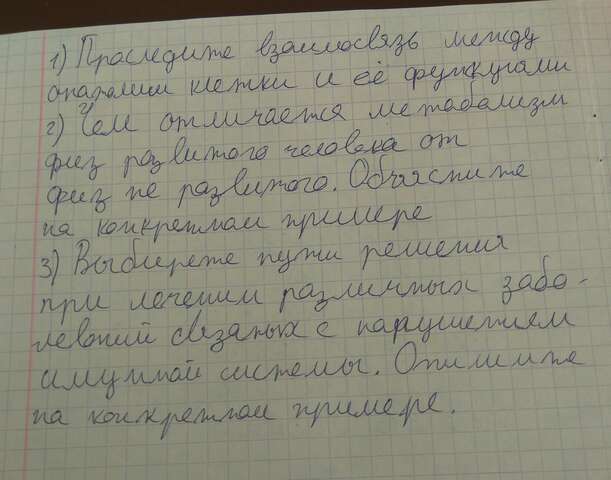 1) Проследите взаимосвязь между
клетки и её функциями
2) Чем отличается метаболизм
физ развитого человека от
физ не развитого. Объясните
на конкретном примере
3) Выберете пути решения
при лечении различных забо-
леваний связаных с нарушением
имунной системы. Опишите
на конкретном примере.